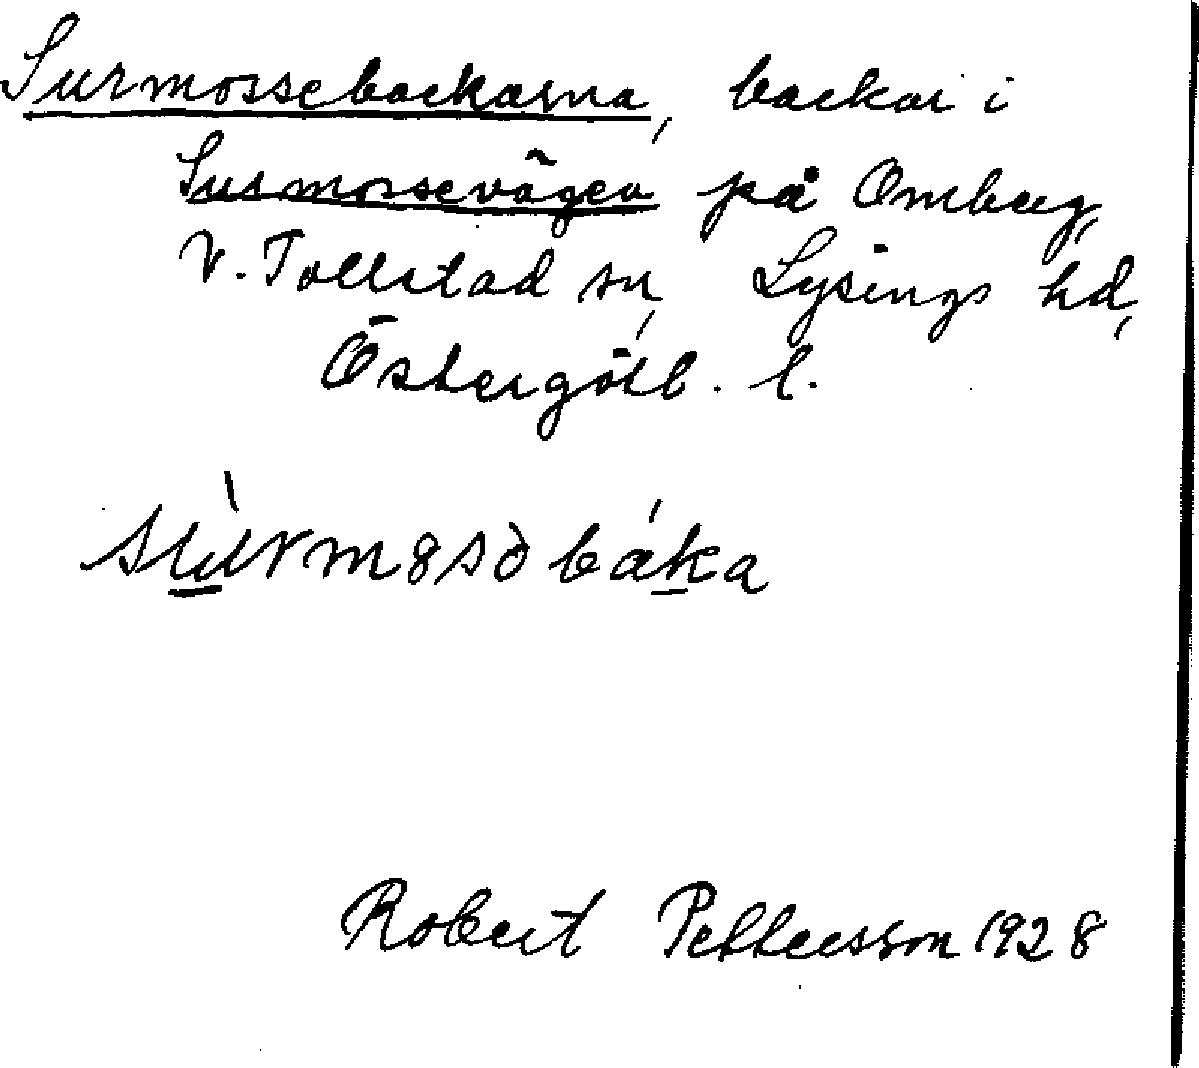 Surmossebackarna, backar i
Surmossevägen på Omberg,
V. Tollstad sn, Lysings hd,
Östergötl. l.
Robert Pettersson 1928